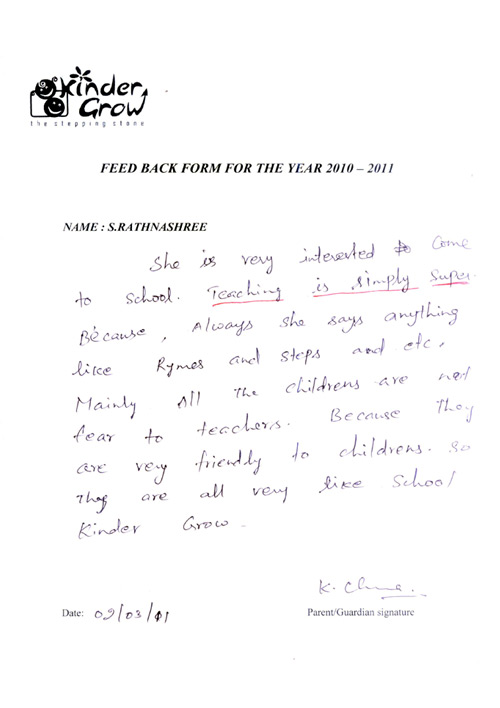 Kinder Grow
the stepping stone
FEED BACK FORM FOR THE YEAR 2010 – 2011
NAME : S.RATHNASHREE
She is very interested to Come
to school. Teaching is simply super.
Because, Always she says anything
like Rymes and steps and etc.
Mainly All The childrens are not
fear to teachers. Because they
are very friendly to childrens. So
They are all very like School
Kinder Grow.
K.
Date: 09/03/
Parent/Guardian signature